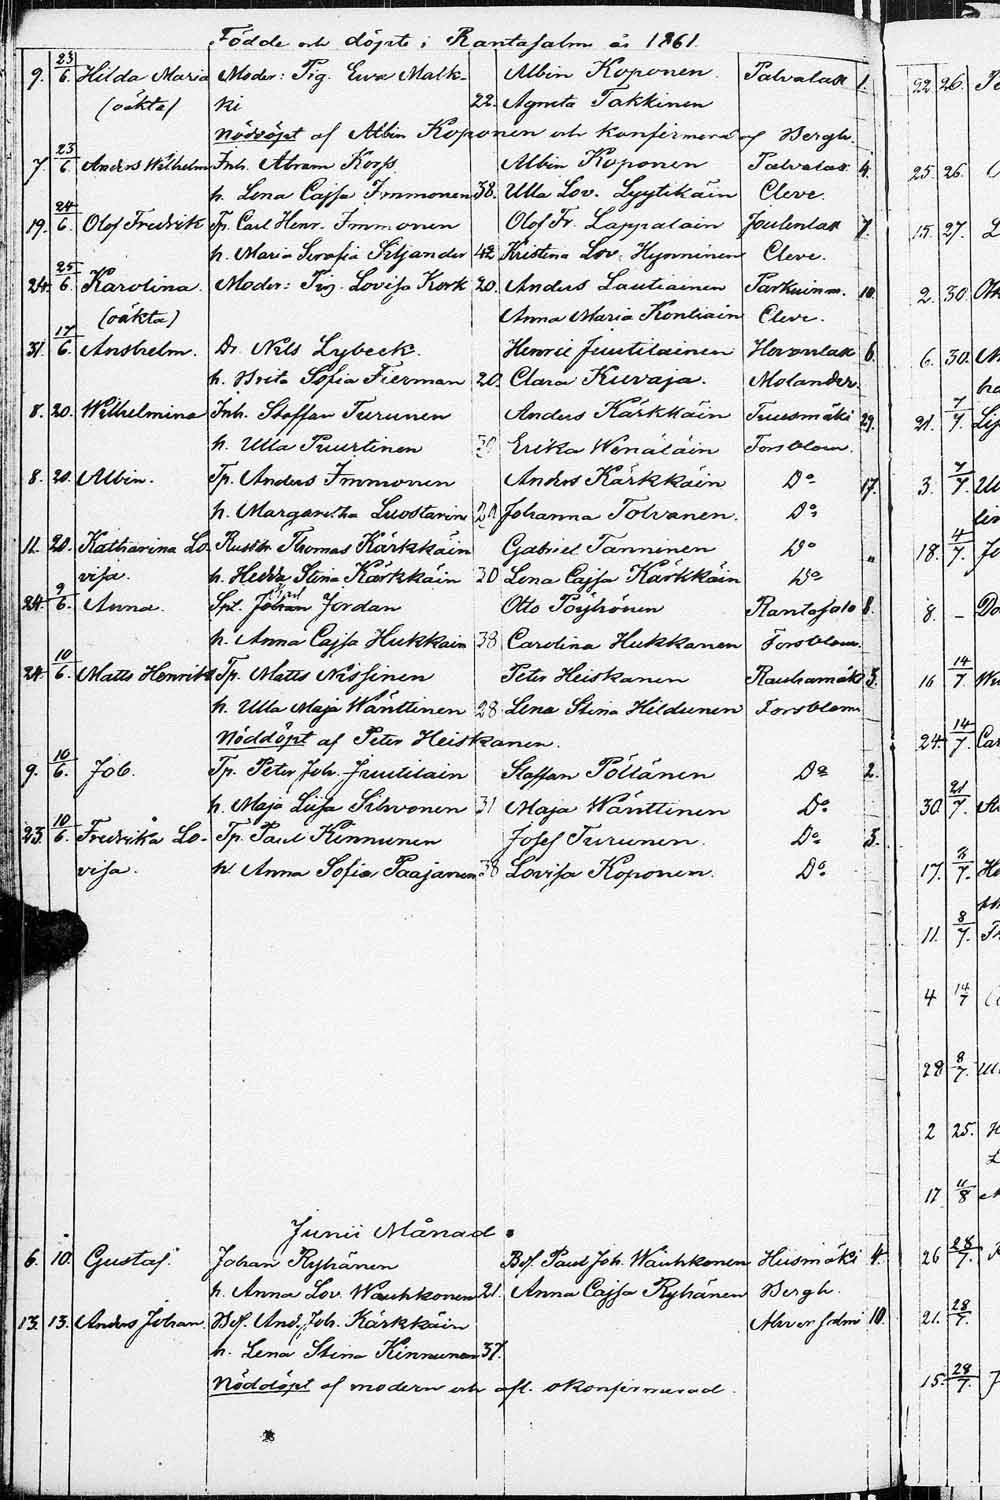 Födde och döpte i Rantasalmi år 1861.
9. 23/6. Hilda Maria Moder: Pig. Ewa Malk- Albin Koponen. Palvalax 1.
(oäkta) ki 22. Agneta Takkinen
Nöddöpt af Albin Koponen och konfirmerad af Bergh.
7. 23/6. Anders Wilhelm Inh. Abram Korps Albin Koponen Palvalax 4.
h. Lena Cajsa Immonen 38. Ulla Lov. Lyytikäin Cleve.
19. 24/6. Olof Fredrik Tp. Carl Henr. Immonen Olof Fr. Lappalain Joutenlax 7.
h. Maria Serafia Siljander 42 Kristina Lov. Hynninen Cleve.
24. 25/6. Karolina. Moder: Pig. Lovisa Kork 20. Anders Lautiainen Parkuinm. 10.
(oäkta) Anna Maria Kontiain Cleve.
31. 17/6. Anshelm. Dr. Nils Lybeck. Henric Juutilainen 6.
h. Brita Sofia Fierman 20. Clara Kuvaja. Molander.
8. 20. Wilhelmina Inh. Staffan Turunen Anders Kärkkäin Tuusmäki 29.
h. Ulla Puurtinen Erika Wenäläin Forsblom.
8. 20. Albin. Tp. Anders Immonen Anders Kärkkäin Do 17.
h. Margaretha Luostarin Johanna Tolvanen. Do
11. 20. Katharina Lo- Rusth. Thomas Kärkkäin Gabriel Tanninen Do "
visa. h. Hedda Stina Kärkkäin 30 Lena Cajsa Kärkkäin Do
24. 9/6. Anna. Spt. Johan Jordan Otto Pöyhönen 8.
h. Anna Cajsa Hukkain 38 Carolina Hukkanen Forsblom.
24. 10/6. Matts Henrik Tp. Matts Nissinen Peter Heiskanen Rauhamäki 3.
h. Ulla Maja Wänttinen 28 Lena Stina Hildunen Forsblom
Nöddöpt af Peter Heiskanen.
9. 10/6. Job. Tp. Peter Joh. Juutilain Staffan Pöllänen Do 2.
h. Maja Liisa Silvonen 31 Maja Wänttinen Do
23. 10/6. Fredrika Lo- Tp. Paul Kinnunen Josef Turunen. Do 3.
visa. h. Anna Sofia Paajanen 38 Lovisa Koponen. Do
Junii Månad.
6. 10. Gustaf. Johan Ryhänen Bef. Paul Joh. Wauhkonen Hiismäki 4.
h. Anna Lov. Wauhkonen 21. Anna Cajsa Ryhänen Bergh.
13. 13. Anders Johan. Bef. And. Joh. Kärkkäin 10.
h. Lena Stina Kinnunen 37.
Nöddöpt af modern och afl. okonfirmerad.
22. 26.
25. 26.
15. 27.
2. 30.
6. 30.
21. 7/7.
3. 7/7.
18. 4/7.
8. –
16 14/7
24. 14/7.
30. 21/7.
17. 7.
11. 8/7.
4 14/7
28 8/7.
2 25.
17 11/8
26 28/7.
21. 28/7.
15. 28/7.